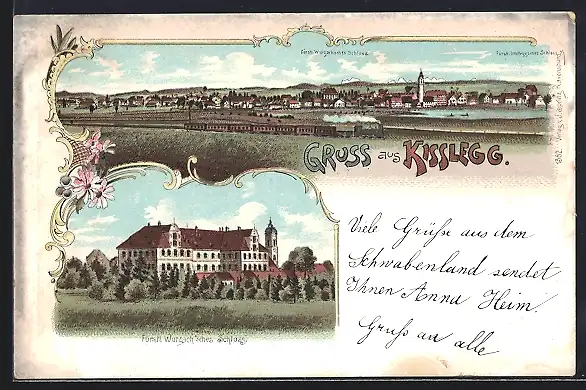 Fürstl. Wurzach'sches Schloss.
GRUSS aus KISSLEGG.
Fürstl. Wurzach'sches Schloss.
Viele Grüße aus dem
Schwabenland sendet
Ihnen Anna Heim.
Gruß an alle